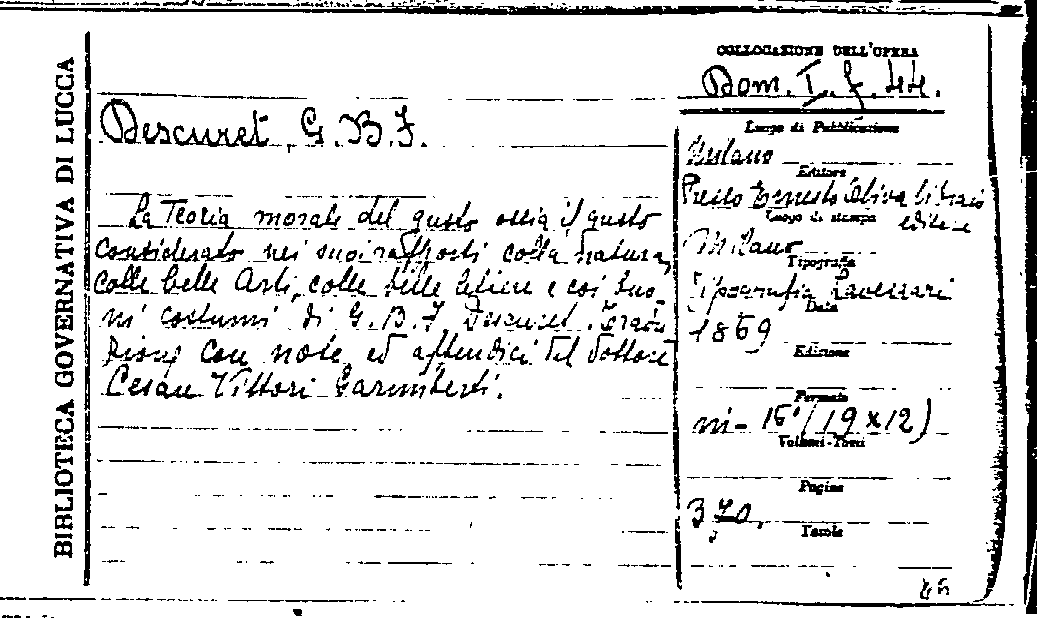 BIBLIOTECA GOVERNATIVA DI LUCCA
COLLOCAZIONE DELL'OPERA
Dom. I. f. 44.
Descuret, G. B. F.
La Teoria morale del gusto ossia il gusto
considerato nei suoi rapporti colla natura,
colle belle Arti, colle belle lettere e coi buo-
ni costumi di G. B. F. Descuret. Tradu-
zione con note ed appendici del dottore
Cesare Vittori Garimberti.
Luogo di Pubblicazione
Milano
Editore
Presso Ernesto Oliva libraio
editore
Luogo di stampa
Milano
Tipografia
Tipografia
Data
1869
Edizione
Formato
in-16° (19 x 12)
Volumi-Tomi
Pagine
370.
Tavole